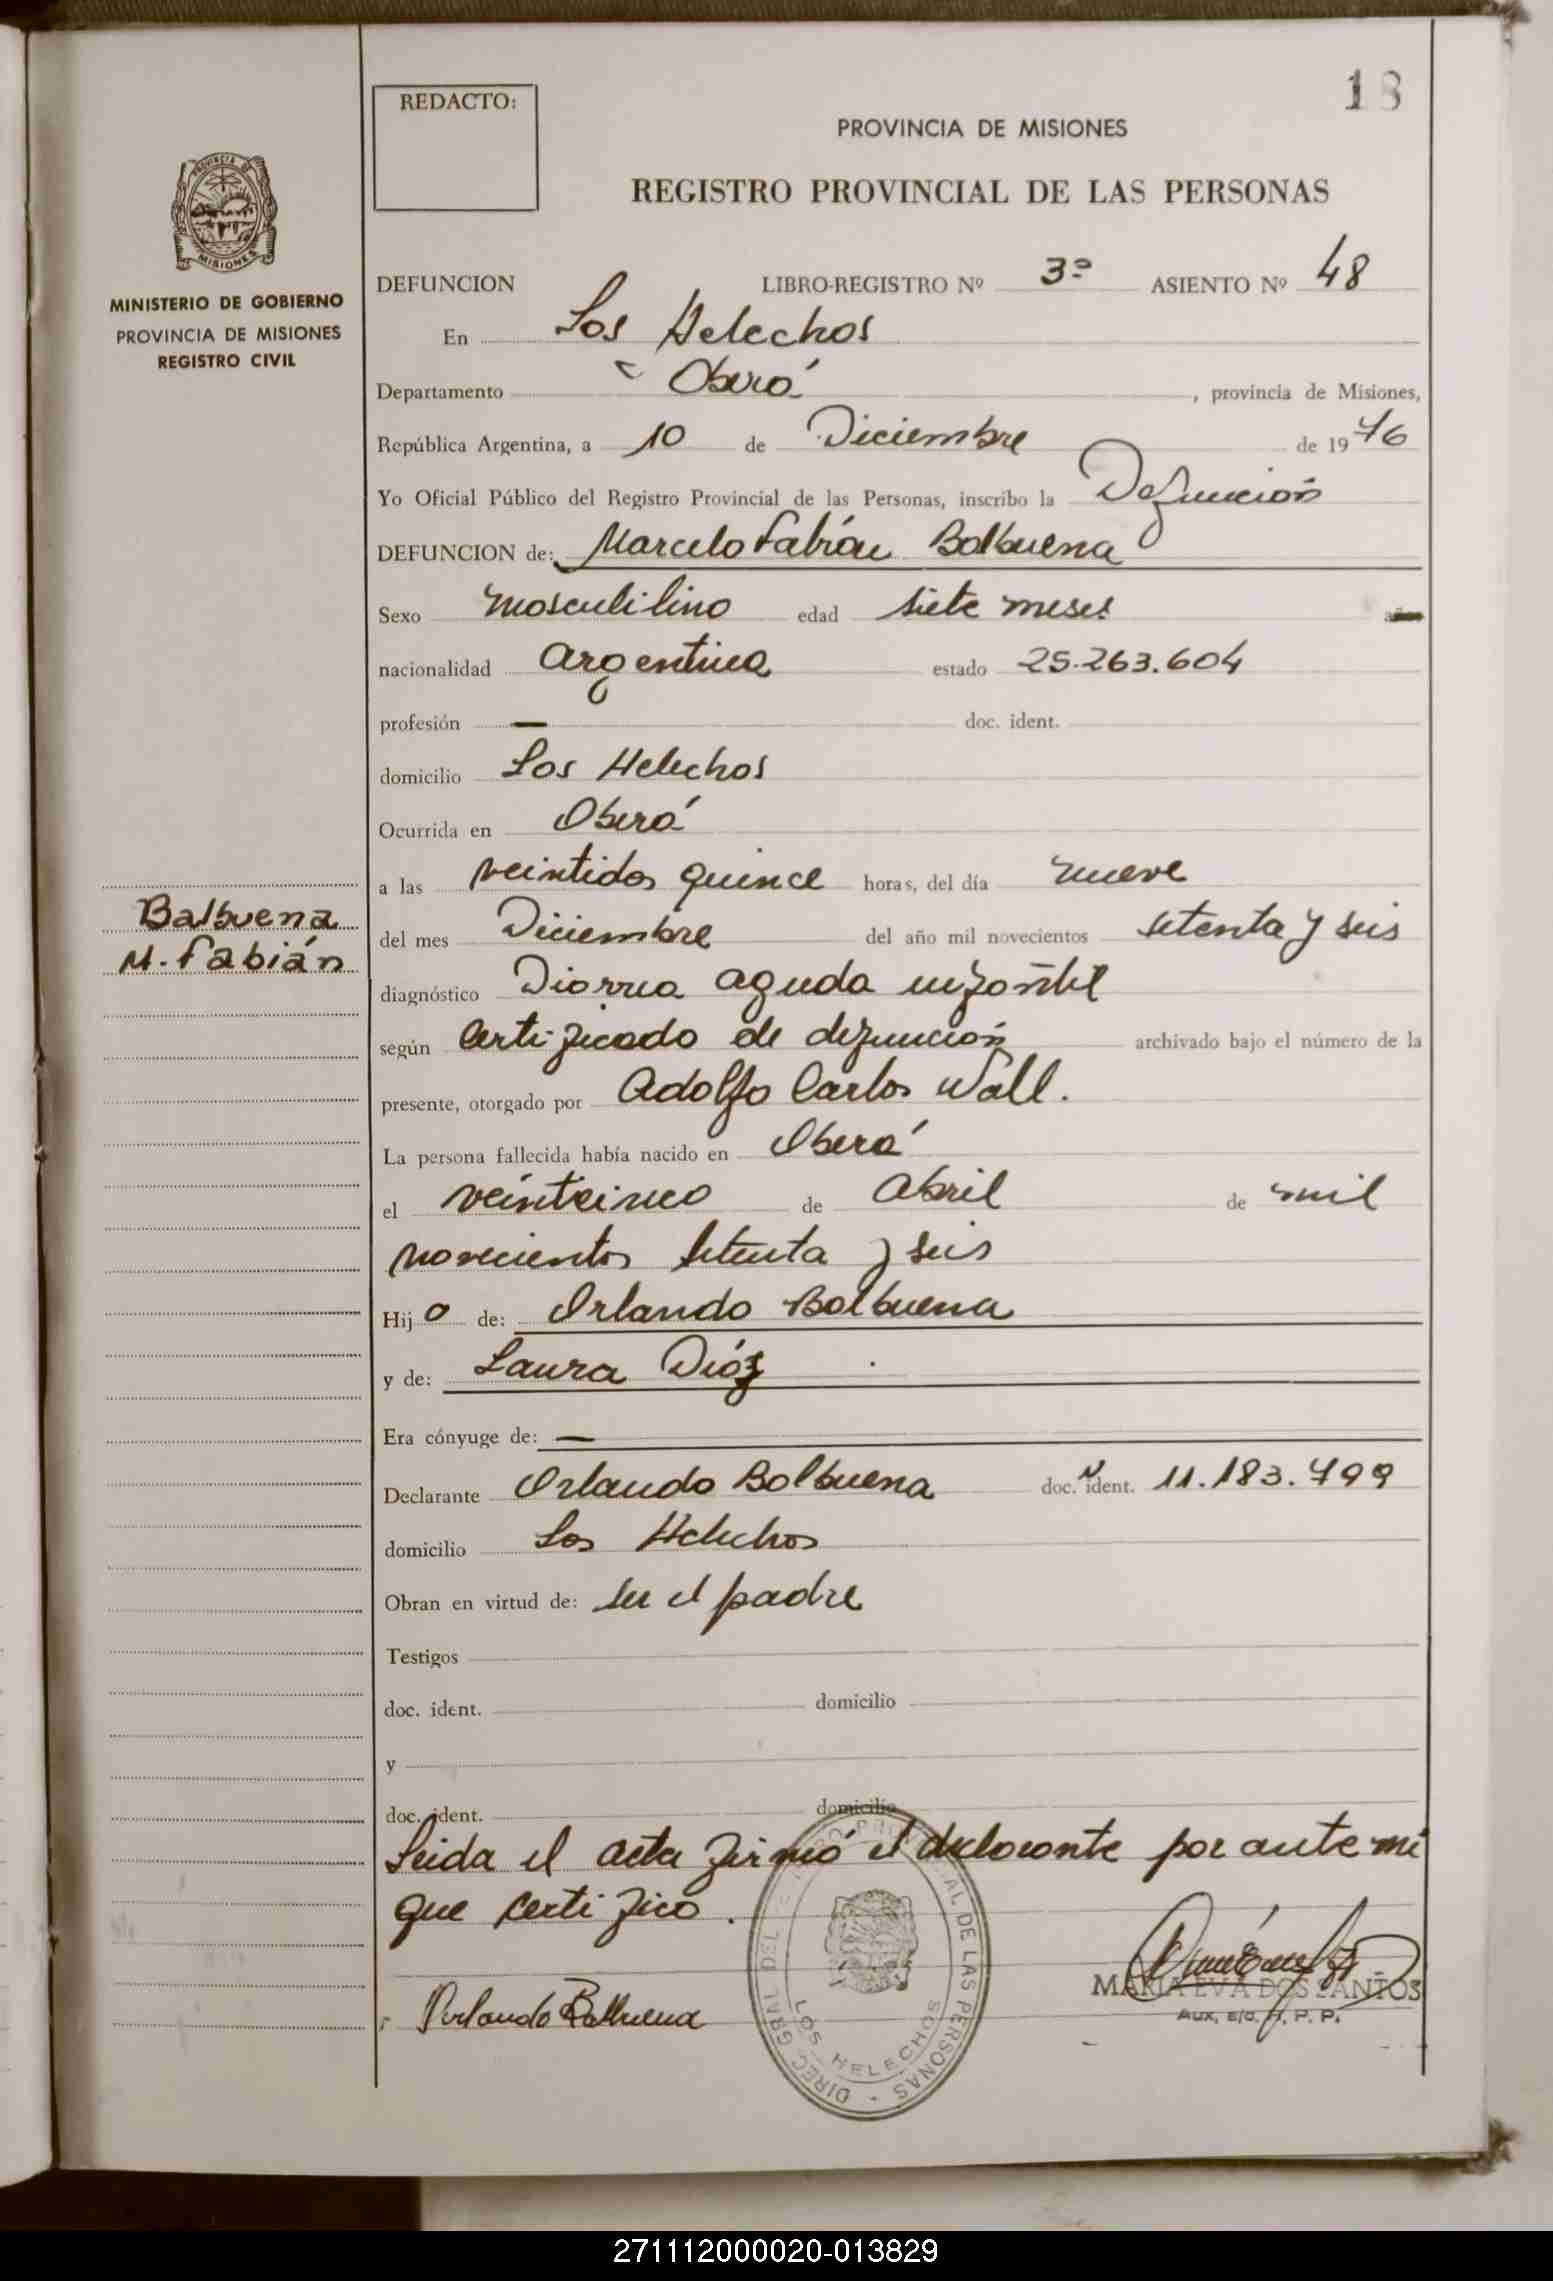 18
REDACTO:
PROVINCIA DE MISIONES
REGISTRO PROVINCIAL DE LAS PERSONAS
PROVINCIA DE
MISIONES
MINISTERIO DE GOBIERNO
PROVINCIA DE MISIONES
REGISTRO CIVIL
DEFUNCION LIBRO-REGISTRO Nº 3º ASIENTO Nº 48
En Los Helechos
Departamento Oberá, provincia de Misiones,
República Argentina, a 10 de Diciembre de 1976
Yo Oficial Público del Registro Provincial de las Personas, inscribo la Defunción
DEFUNCION de: Marcelo Fabián Balbuena
Sexo Masculilino edad siete meses
nacionalidad Argentina estado 25.263.604
profesión — doc. ident.
domicilio Los Helechos
Ocurrida en Oberá
a las veintidos quince horas, del día nueve
Balbuena
M. Fabián
del mes Diciembre del año mil novecientos setenta y seis
diagnóstico Diarrea aguda infantil
según Certificado de defunción archivado bajo el número de la
presente, otorgado por Adolfo Carlos Wall.
La persona fallecida había nacido en Oberá
el veinticinco de Abril de mil
novecientos setenta y seis
Hijo de: Orlando Balbuena
y de: Laura Díaz
Era cónyuge de: —
Declarante Orlando Balbuena doc. ident. 11.183.799
domicilio Los Helechos
Obran en virtud de: ser el padre
Testigos
doc. ident. domicilio
y
doc. ident. domicilio
Leida el acta firmó el declarante por ante mi
que certifico.
Orlando Balbuena
DIREC. GRAL DEL REGISTRO PROVINCIAL DE LAS PERSONAS
LOS HELECHOS
MARIA EVA DOS SANTOS
AUX. E/O. R. P. P.
271112000020-013829